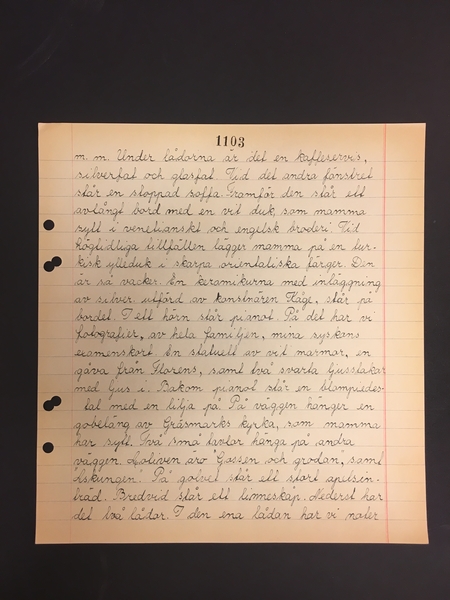 1103
m. m. Under lådorna är det en kaffeservis,
silverfat och glasfat. Vid det andra fönstret
står en stoppad soffa. Framför den står ett
avlångt bord med en vit duk som mamma
sytt i venetianskt och engelsk broderi. Vid
högtidliga tillfällen lägger mamma på en tur-
kisk ylleduk i skarpa orientaliska färger. Den
är så vacker. En keramikurna med inläggning
av silver, utförd av konstnären Kåge, står på
bordet. I ett hörn står pianot. På det har vi
fotografier, av hela familjen, mina syskons
examenskort. En statuett av vit marmor, en
gåva från Florens, samt två svarta ljusstakar
med ljus i. Bakom pianot står en blompiedes-
tal med en lilja på. På väggen hänger en
gobeläng av Gräsmarks kyrka, som mamma
har sytt. Två små tavlor hänga på andra
väggen. Motiven äro "Gossen och grodan", samt
Askungen. På golvet står ett stort apelsin-
träd. Bredvid står ett linneskåp. Nederst har
det två lådor. I den ena lådan har vi noter